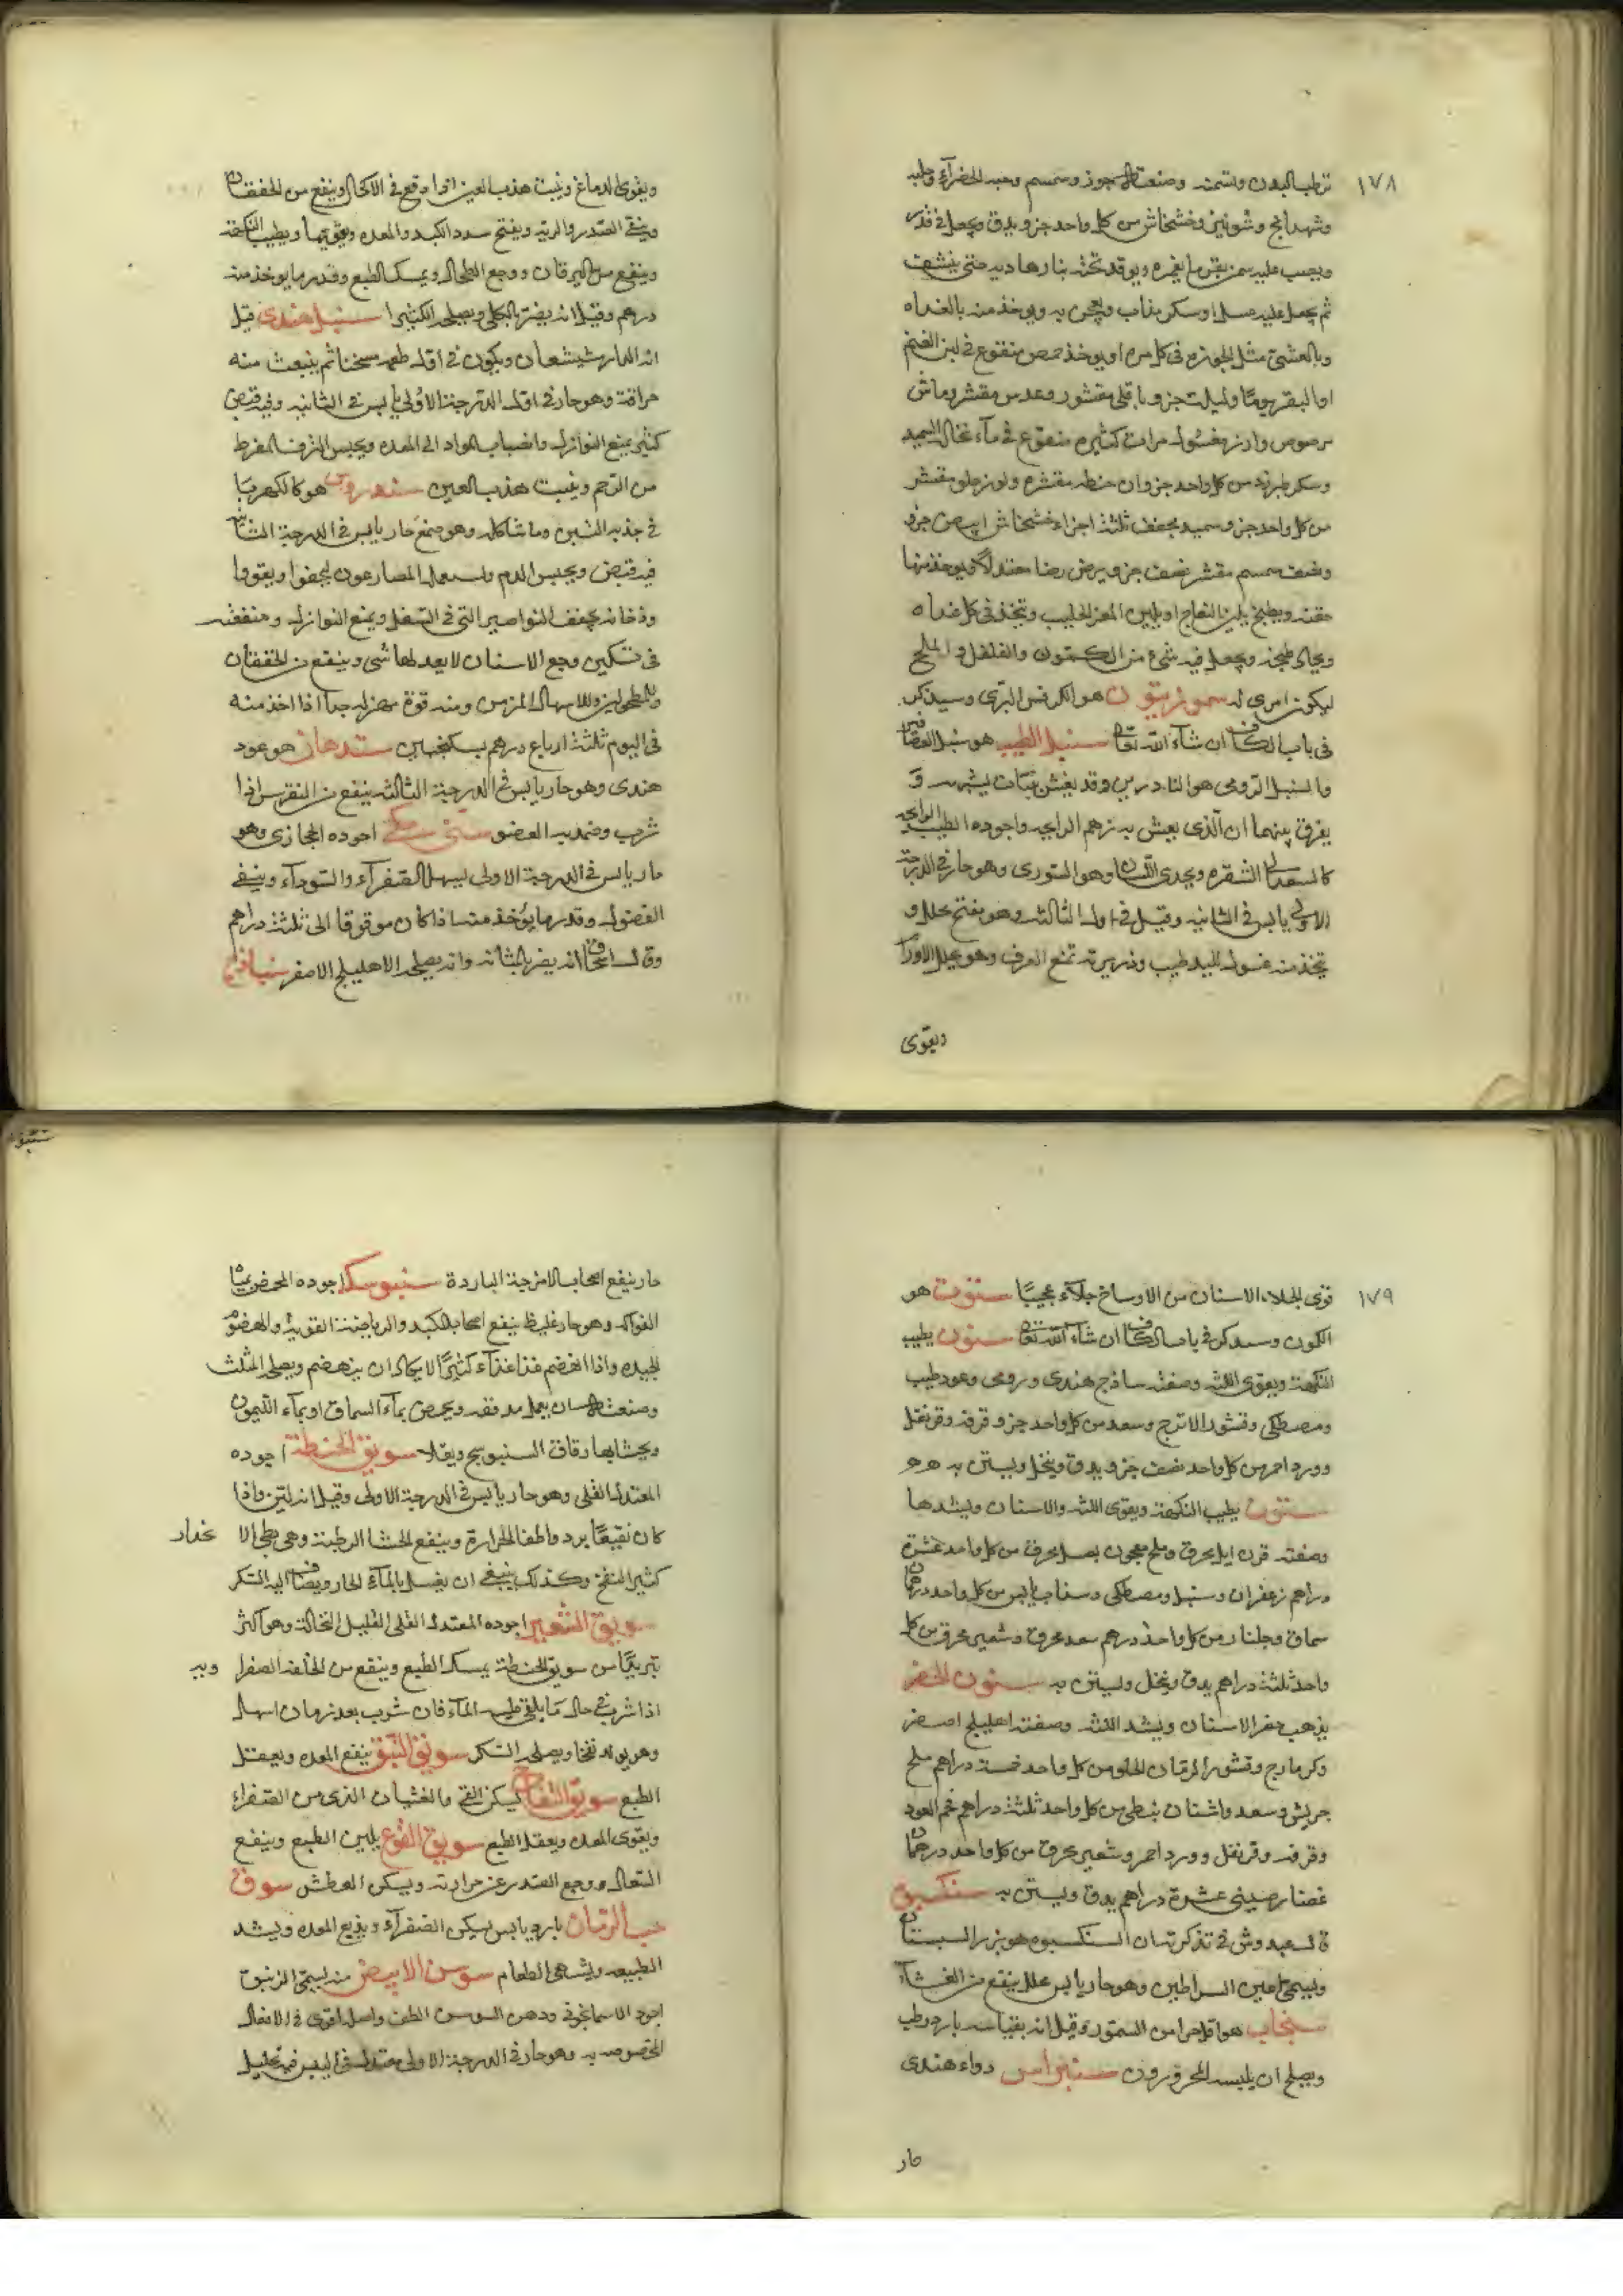 ١٧٨
ترطب البدن وتسمنه وصنعته جوز وسمسم وحبه الخضرآء وحلبه
وشهدانج وشونيز وخشخاش من كل واحد جزو يدق ويجعل في قدر
ويصب عليه سمن بقر ما يغمره ويوقد تحته بنار هاديه حتى ينشف
ثم يجعل عليه عسل او سكر مذاب ويعجن به ويوخذ منه بالغداه
وبالعشى مثل الجوزه فى كل مره او يوخذ حمص منقوع في لبن الغنم
او البقر يوما وليلة جزو باقلى مقشور وعدس مقشر وماش
مرصوص وارز مغسول مرات كثيره منقوع في مآء نخال السميد
وسكر طبرزد من كل واحد جزوان حنطه مقشره ولوز حلو مقشر
من كل واحد جزو سميد مجفف ثلثة اجزاء خشخاش ابيض جزو
ونصف سمسم مقشر نصف جزو يرض رضا معتدلا ويوخذ منها
حفنه ويطبخ بلبن النعاج او بلبن المعز الحليب وتتخذ فى كل غداه
ويجاد طبخه ويجعل فيه شىء من الكمون والفلفل والملح
ليكون امرى له سمورنيون هو الكرفس البرى وسيذكر
فى باب الكاف ان شآء الله تعا سنبل الطيب هو سنبل العصافير
والسنبل الرومى هو الناردين وقد يغش بنبات يشبهه و
يفرق بينهما ان الذى يغش به زهم الرايحه واجوده الطيب الرايحه
كالسعد الى الشقره ويحدى اللسان وهو السورى وهو حار في الدرجة
الاولى يابس في الثانيه وقيل في اول الثالثه وهو مفتح محلل و
تتخذ منه غسول لليد طيب وذريرته تمنع العرق وهو يحلل الاورآ
ويقوى
ويقوى الدماغ وينبت هدب العين اذا وقع في الاكحال وينفع من الخفقان
وينقى الصدر والريه ويفتح سدد الكبد والمعده ويقويها ويطيب النكهة
وينفع من اليرقان ووجع الطحال ويمسك الطبع وقدر ما يوخذ منه
درهم وقيل انه يضر بالكلى ويصلحه الكثيرا سنبل هندى قيل
انه الدارشيشعان ويكون في اول طعمه مسخنا ثم ينبعث منه
حرافة وهو حار في اول الدرجة الاولى يابس في الثانيه وفيه قبض
كثير يمنع النوازل وانصباب المواد الى المعده ويحبس النزف المفرط
من الرحم وينبت هدب العين سندروس هو كالكهربا
في جذبه التبن وما شاكله وهو صمغ حار يابس في الدرجة الثانية
فيه قبض ويحبس الدم ويستعمله المصارعون ليخفوا ويقووا
ودخانه يجفف النواصير التى فى السفل ويمنع النوازل ومنفعته
فى تسكين وجع الاسنان لا يعد لها شى وينفع من الخفقان
والمطحولين وللاسهال المزمن ومنه قوة مهزله جدا اذا اخذ منه
فى اليوم ثلثة ارباع درهم بسكنجبين سندهان هو عود
هندى وهو حار يابس في الدرجة الثالثه ينفع من النقرس اذا
شرب وضمد به العضو سنى مكى اجوده الحجازى وهو
حار يابس في الدرجة الاولى يسهل الصفرآء والسودآء وينقى
الفضول وقدر ما يؤخذ منه اذا كان مدقوقا الى ثلثة دراهم
وقال اسحاق انه يضر بالمثانه وانه يصلحه الاهليلج الاصفر سنباذج
١٧٩
قوى الجلاء الاسنان من الاوساخ جلآء عجيبا سنوت هو
الكمون وسيذكر في باب الكاف ان شآء الله تعا سنون يطيب
النكهة ويقوى اللثه وصفته ساذج هندى ورومى وعود طيب
ومصطكى وقشور الاترج وسعد من كل واحد جزو قرفه وقرنفل
وورد احمر من كل واحد نصف جزو يدق وينخل ويستن به
سنون يطيب النكهة ويقوى اللثه والاسنان ويشدها
وصفته قرن ايل محرق وملح معجون بعسل محرق من كل واحد عشرة
دراهم زعفران وسنبل ومصطكى وسذاب يابس من كل واحد درهمان
سماق وجلنار من كل واحد درهم سعد محرق وشعير محرق من كل
واحد ثلثة دراهم يدق وينخل ويستن به سنون للحفر
يذهب حفر الاسنان ويشد اللثه وصفته اهليلج اصفر
وكزمازج وقشور الرمان الحلو من كل واحد خمسة دراهم ملح
جريش وسعد واشنان نبطى من كل واحد ثلثة دراهم فحم العود
وقرفه وقرنفل وورد احمر وشعير محرق من كل واحد درهمان
غضار صينى عشرة دراهم يدق ويستن به سنكسبو
قال عبدوش في تذكرته ان السنكسبوه هو بزر البستان
ويسمى اعين السراطين وهو حار يابس محلل ينفع من الغشآء
سنجاب هو اقل حرا من السمور وقيل انه بقياسه بارد رطب
ويصلح ان يلبسه المحرورون سنبراس دواء هندى
حار
حار ينفع اصحاب الامزجة الباردة سنبوسك اجوده المحمض بمياه
الفواكه وهو حار غليظ ينفع اصحاب الكبد والرياضة القويه والهضوم
الجيده واذا انهضم غذا غذآء كثيرا لا يكاد ان ينهضم ويصلحه المثلث
وصنعته ان يعمل مدققه ويحمض بمآء السماق او بمآء الليمون
ويحشا بها رقاق السنبوسج ويقلا سويق الحنطة اجوده
المعتدل القلى وهو حار يابس في الدرجة الاولى وقيل انه لين واذا
كان نقيعا برد واطفا الحرارة وينفع الحشا الرطبة وهى بطى الا نحدار
كثير النفخ وكذلك ينبغى ان يغسل بالمآء الحار ويضاف اليه السكر
سويق الشعير اجوده المعتدل القلى القليل النخالة وهو اكثر
تبريدا من سويق الحنطة يمسك الطبع وينفع من الخلفه الصفرا ويه
اذا شرب في حال ما يلقى عليه المآء فان شرب بعد زمان اسهل
وهو يولد نفخا ويصلحه السكر سويق النبق ينفع المعده ويعقل
الطبع سويق التفاح يسكن القى والغثيان الذى من الصفراء
ويقوى المعده ويعقل الطبع سويق القرع يلين الطبع وينفع
السعال ووجع الصدر عن حرارته ويسكن العطش سوق
حب الرمان بارد يابس يسكن الصفرآء ويدبغ المعده ويشد
الطبيعه ويشهى الطعام سوسن الابيض منه يسمى الزنبق
اجود الاسمانجونى ودهن السوسن الطف واصله اقوى في الافعال
المخصوصه به وهو حار في الدرجة الاولى معتدل في اليبس فيه تحليل